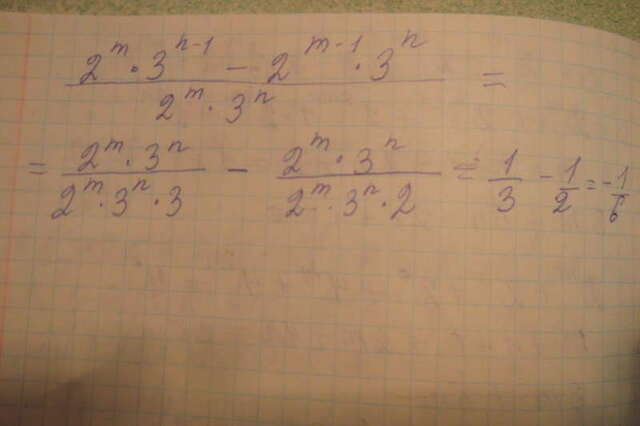 \frac{2^m \cdot 3^{n-1} - 2^{m-1} \cdot 3^n}{2^m \cdot 3^n} =
= \frac{2^m \cdot 3^n}{2^m \cdot 3^n \cdot 3} - \frac{2^m \cdot 3^n}{2^m \cdot 3^n \cdot 2} = \frac{1}{3} - \frac{1}{2} = -\frac{1}{6}